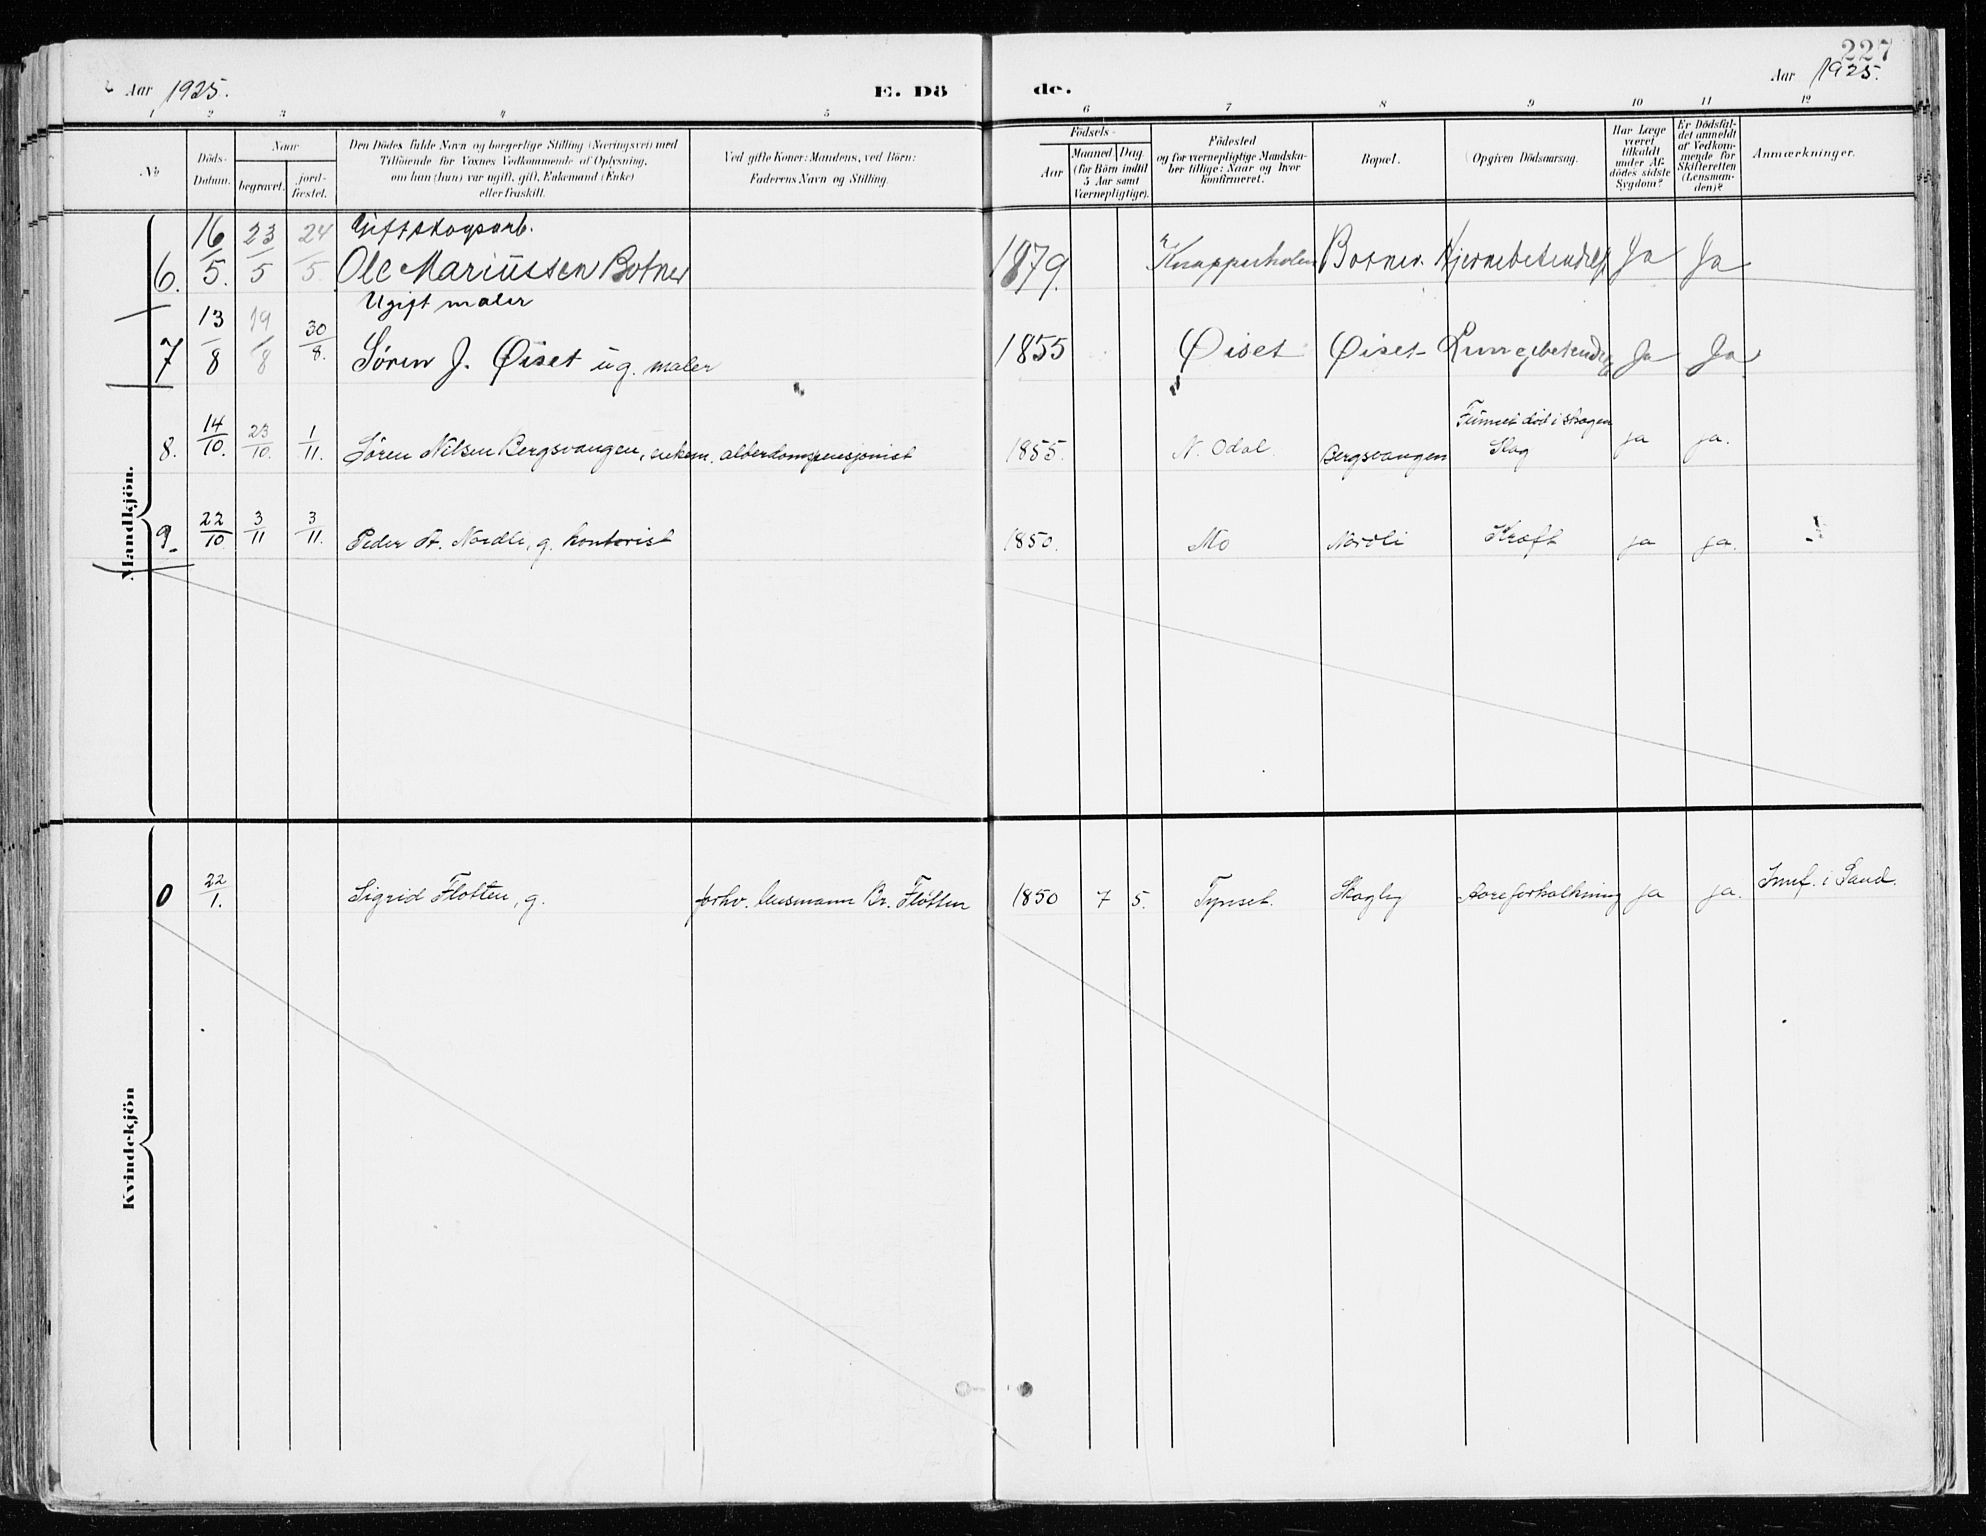 227
Aar 1925.
E. Dö
de.
Aar 1925.
1 2 3 4 5 6 7 8 9 10 11 12
No
Döds-Datum.
Naar
begravet.
jord-fæstet.
Den Dödes fulde Navn og borgerlige Stilling (Næringsvei) med
Tilföiende for Voxnes Vedkommende af Oplysning,
om han (hun) var ugift, gift, Enkemand (Enke)
eller fraskilt.
Ved gifte Koner: Mandens, ved Börn:
Faderens Navn og Stilling.
Födsels-
Aar
Maaned Dag.
(for Börn indtil
5 Aar samt
Værnepligtige).
Födested
og for værnepligtige Mandska-
ber tillige: Naar og hvor
konfirmeret.
Bopæl.
Opgiven Dödsaarsag.
Har Læge
været
tilkaldt
under Af-
dödes sidste
Sygdom?
Er Dödsfal-
det anmeldt
af Vedkom-
mende for
Skifteretten
(Lensman-
den)?
Anmærkninger.
Mandkjön.
Gift skogsarb.
6. 16/5. 23/5 24/5. Ole Mariussen Botner 1879. Knapperholen Botner. Hjernebetendelse Ja Ja
Ugift maler
7 13/8 19/8 30/8. Søren J. Øiset ug. maler 1855 Øiset Øiset Lungebetendelse Ja Ja
Funnet død i skogen
8. 14/10. 23/10. 1/11. Søren Nilsen Bergsvangen, enkem. alderdomspensjonist 1855. N. Odal. Bergsvangen Skog ja ja.
9. 22/10 3/11 3/11. Peder A. Nordli, g. kontorist 1850. Mo Nordli Kræft ja ja.
Kvindekjön
0 22/1. Sigrid Fløtten, g. forhv. lensmann Br. Fløtten 1850 7 5. Tynset. Skogly Aareforkalkning ja ja. Innf. i Sand.